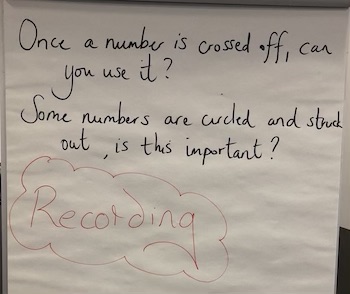 Once a number is crossed off, can
you use it?
Some numbers are circled and struck
out, is this important?
Recording